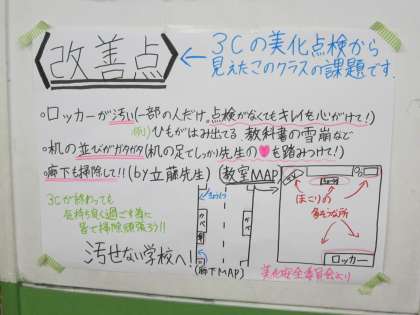 〈改善点〉
←3Cの美化点検から
見えたこのクラスの課題です.
・ロッカーが汚い(一部の人だけ。点検がなくてもキレイを心がけて!)
例)ひもがはみ出てる 教科書の雪崩など
・机の並びがガタガタ(机の足でしっかり先生の♥も踏みつけて!)
・廊下も掃除して!!(by立藤先生)
教室MAP
3Cが終わっても
気持ち良く過ごす為に
皆で掃除頑張ろう!!
汚せない学校へ!
かべ
かべ
(廊下MAP)
ほこりの
多そうな所
ロッカー
美化安全委員会より